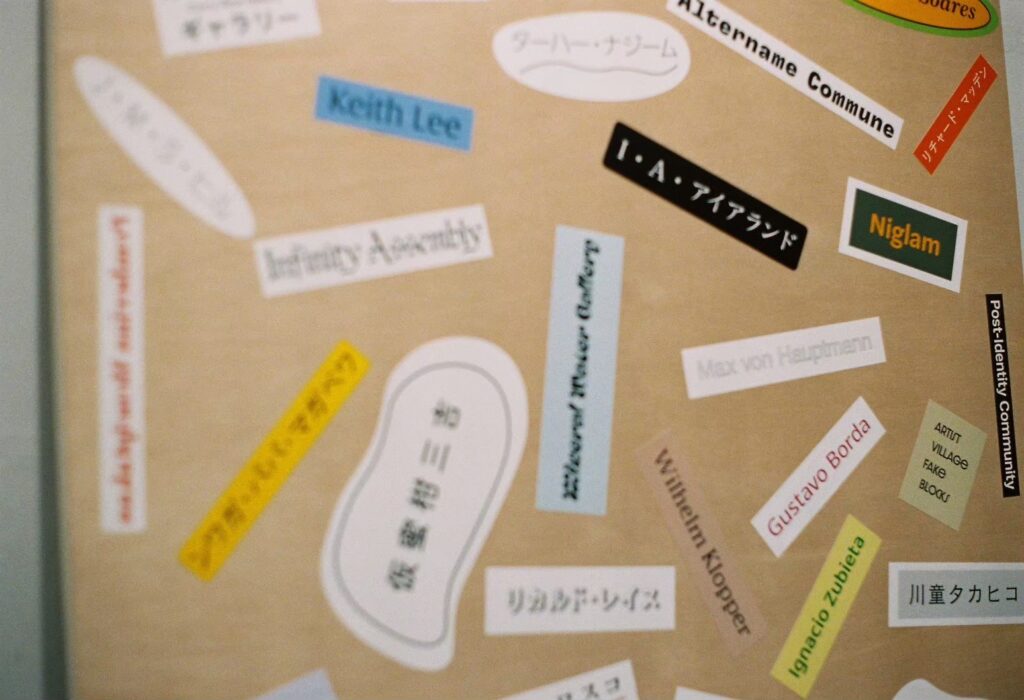 ギャラリー
ターハー・ナジーム
Altername Commune
Soares
リチャード・マッデン
Keith Lee
I・A・アイアランド
Niglam
Infinity Assembly
Mineral Water Gallery
Max von Hauptmann
Post-Identity Community
仮蜜柑三吉
Wilhelm Klopper
Gustavo Borda
ARTIST
VILLAGE
FAKE
BLOCKS
Ignacio Zubieta
リカルド・レイス
川童タカヒコ